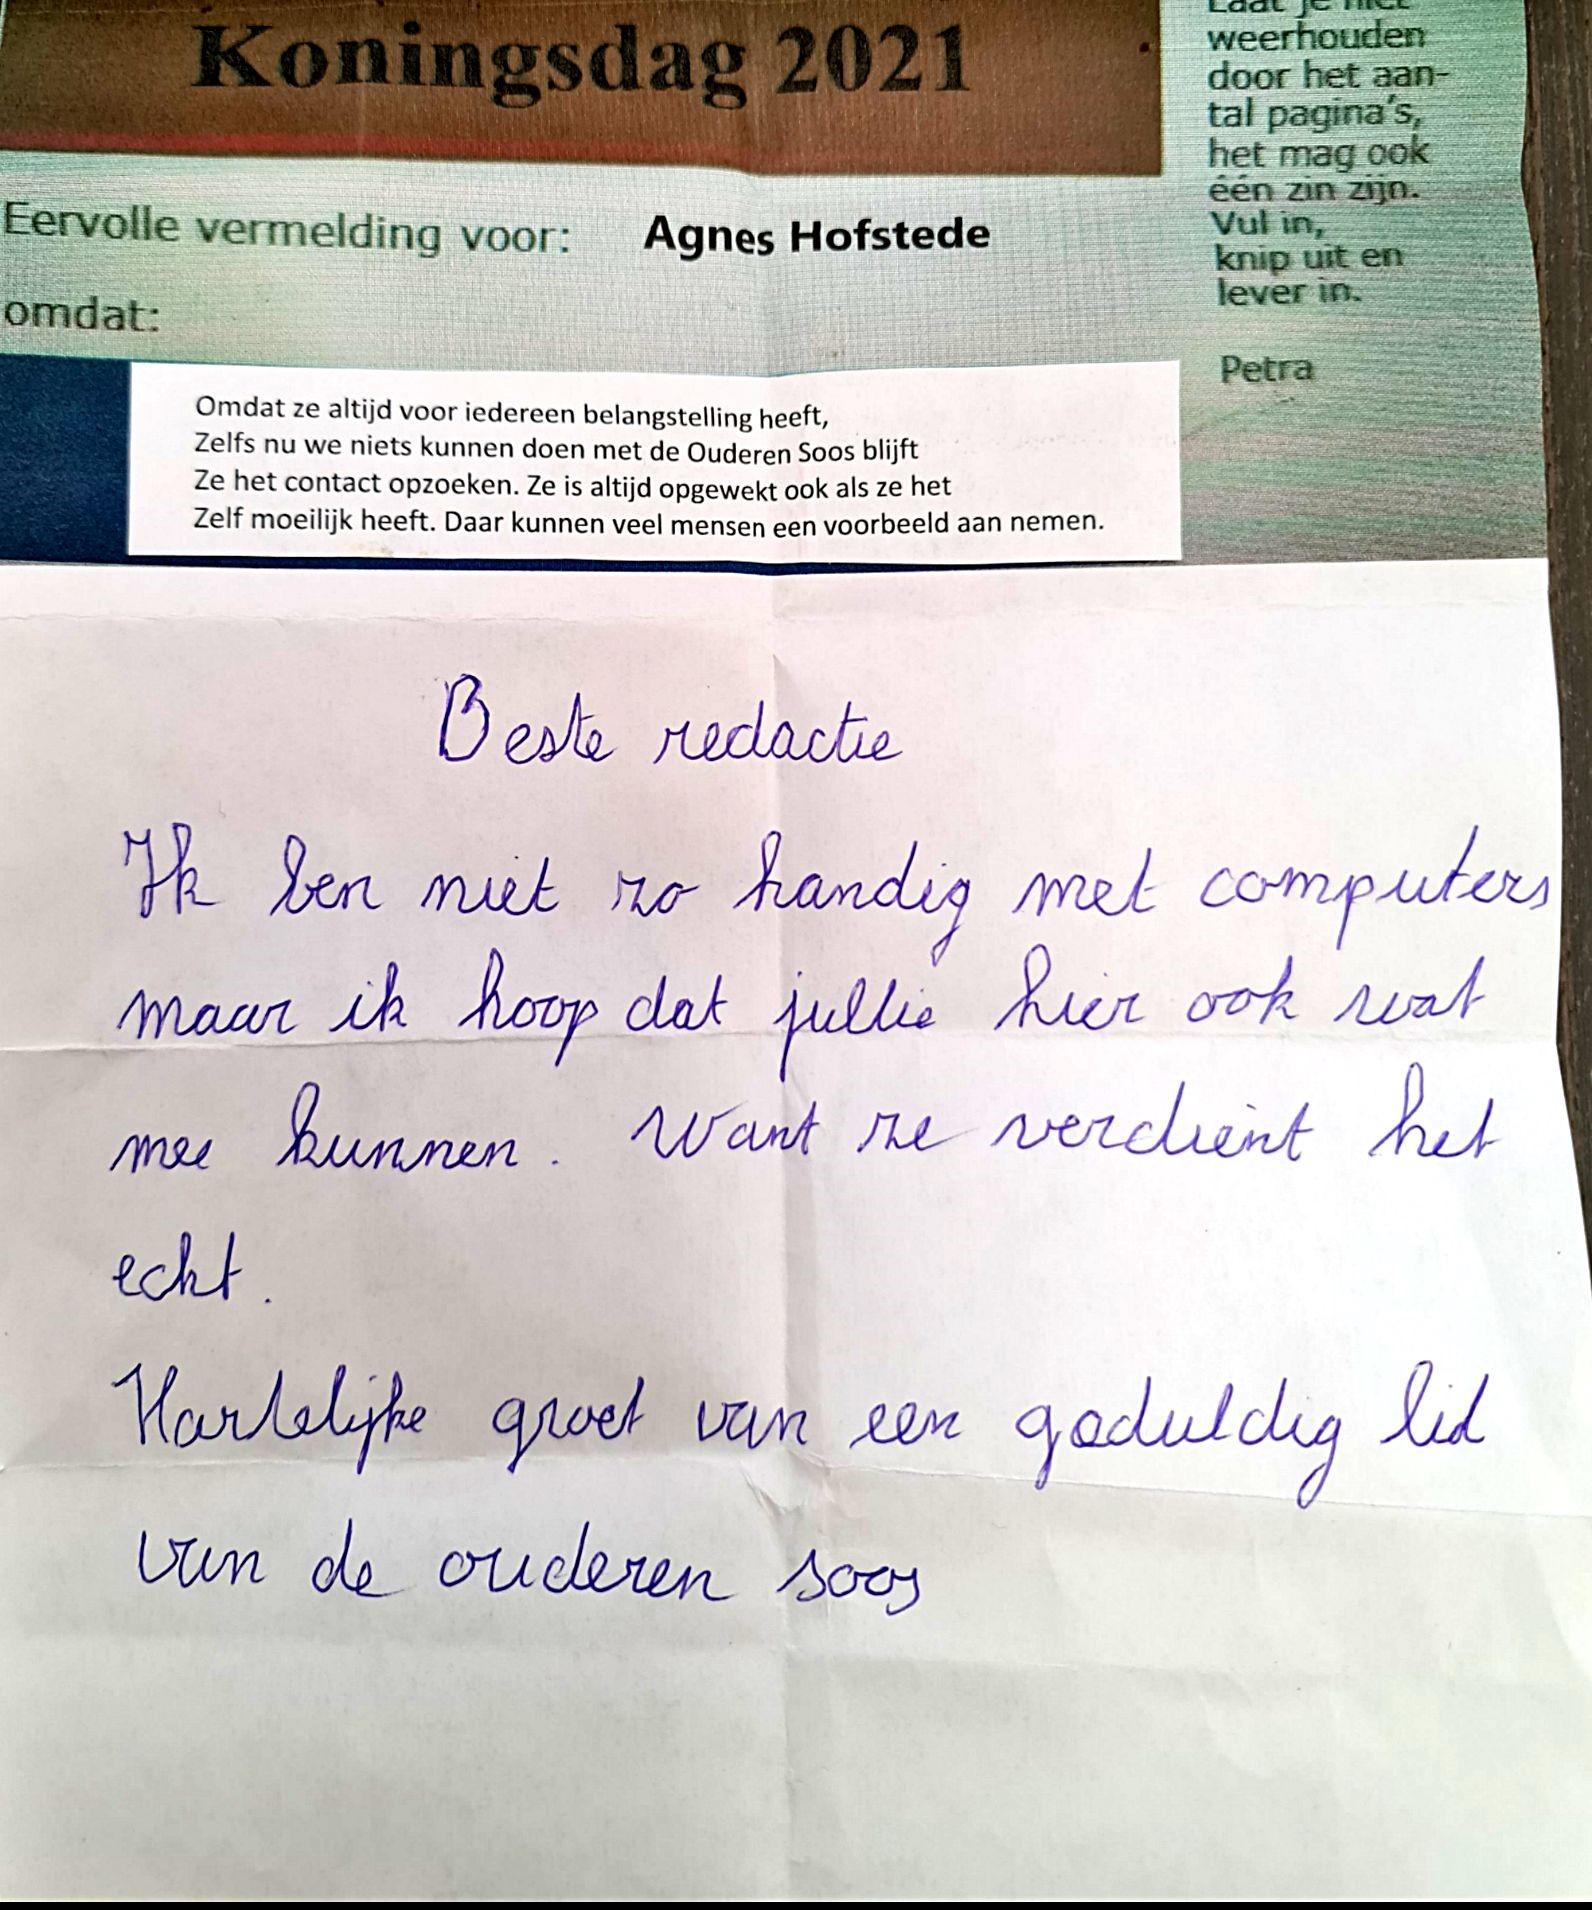 Koningsdag 2021
Eervolle vermelding voor: Agnes Hofstede
omdat:
Laat je niet
weerhouden
door het aan-
tal pagina's,
het mag ook
één zin zijn.
Vul in,
knip uit en
lever in.
Petra
Omdat ze altijd voor iedereen belangstelling heeft,
Zelfs nu we niets kunnen doen met de Ouderen Soos blijft
Ze het contact opzoeken. Ze is altijd opgewekt ook als ze het
Zelf moeilijk heeft. Daar kunnen veel mensen een voorbeeld aan nemen.
Beste redactie
Ik ben niet zo handig met computers
maar ik hoop dat jullie hier ook wat
mee kunnen. Want ze verdient het
echt.
Hartelijke groet van een geduldig lid
van de ouderen soos